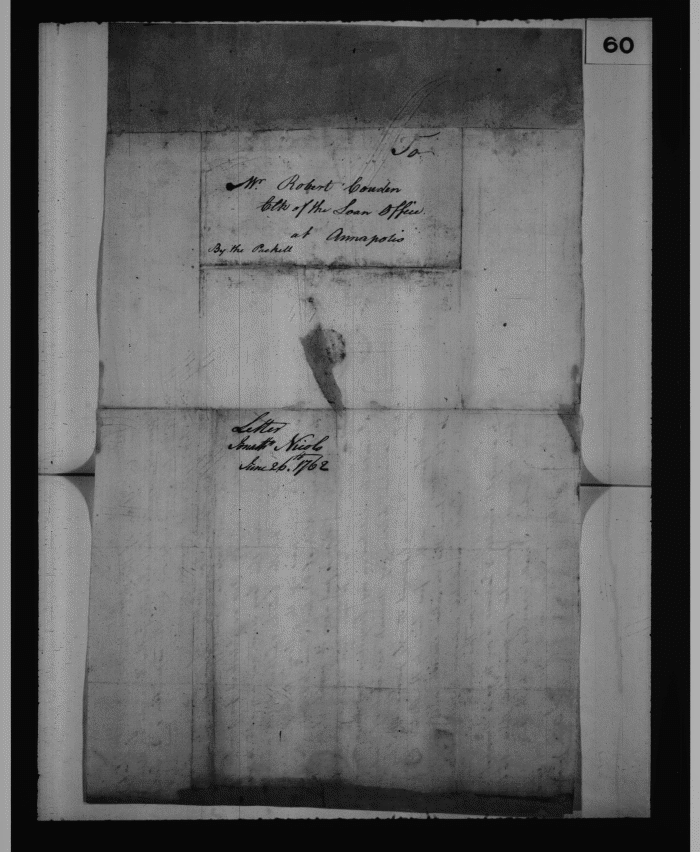 60
To
Mr Robert Couden
Clk of the Loan Office
at Annapolis
By the Packett
Letter
Jonatn Nicols
June 26th 1762